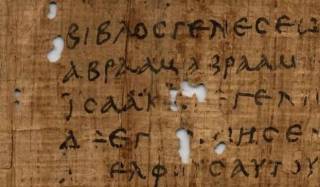 ΒΙΒΛΟϹΓΕΝΕϹΕΩ
ΑΒΡΑΑΜ ΑΒΡΑΑΜ
ΙϹΑΑΚ ΓΕΝ
ΔΕΕΓ ΗϹΕ
ΕΛΦ ΥϹΑΥΤΟΥ